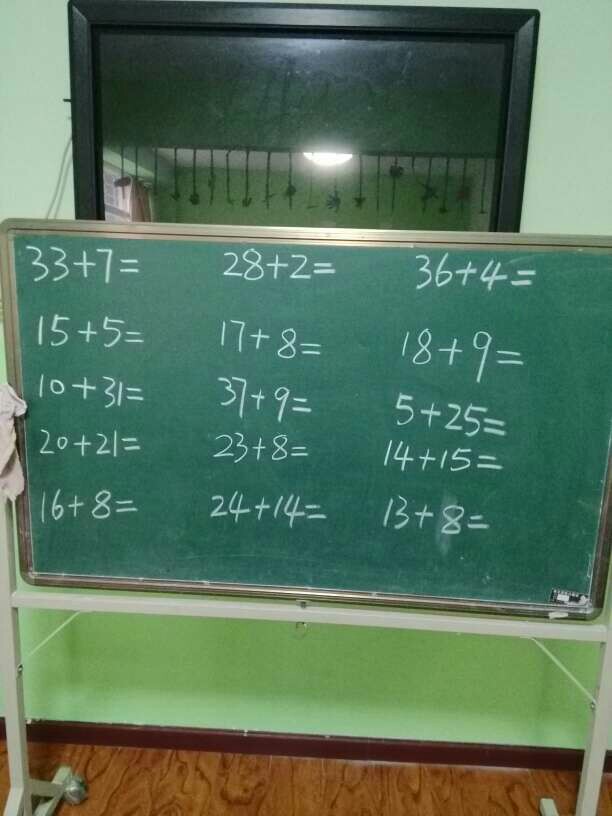 33+7= 28+2= 36+4=
15+5= 17+8= 18+9=
10+31= 37+9= 5+25=
20+21= 23+8= 14+15=
16+8= 24+14= 13+8=